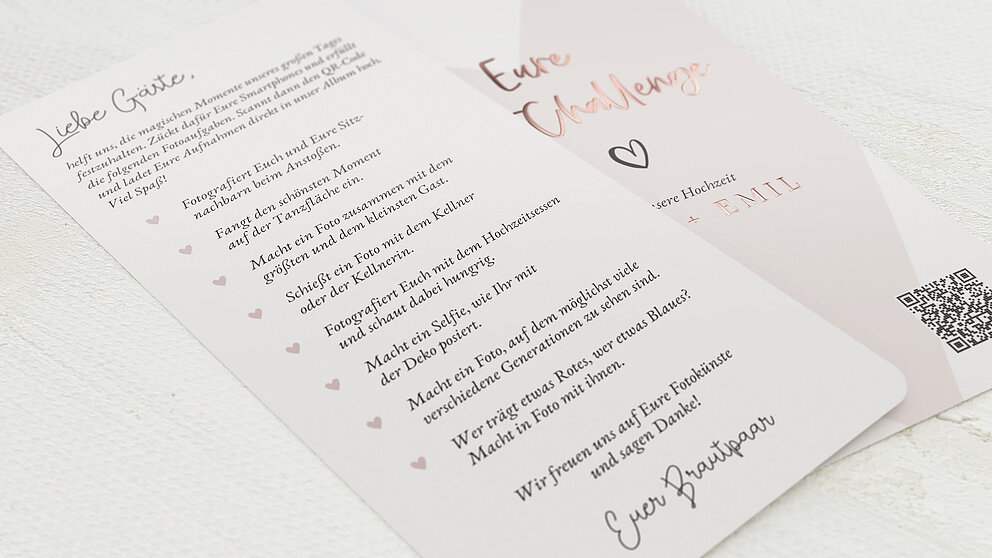 Liebe Gäste,
helft uns, die magischen Momente unseres großen Tages
festzuhalten. Zückt dafür Eure Smartphones und erfüllt
die folgenden Fotoaufgaben. Scannt dann den QR-Code
und ladet Eure Aufnahmen direkt in unser Album hoch.
Viel Spaß!
Fotografiert Euch und Eure Sitz-
nachbarn beim Anstoßen.
Fangt den schönsten Moment
auf der Tanzfläche ein.
Macht ein Foto zusammen mit dem
größten und dem kleinsten Gast.
Schießt ein Foto mit dem Kellner
oder der Kellnerin.
Fotografiert Euch mit dem Hochzeitsessen
und schaut dabei hungrig.
Macht ein Selfie, wie Ihr mit
der Deko posiert.
Macht ein Foto, auf dem möglichst viele
verschiedene Generationen zu sehen sind.
Wer trägt etwas Rotes, wer etwas Blaues?
Macht in Foto mit ihnen.
Wir freuen uns auf Eure Fotokünste
und sagen Danke!
Euer Brautpaar
Eure
Challenge
Hochzeit
+ EMIL